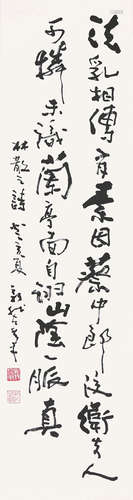 法乳相傳有素因蔡中郎後衛夫人
可憐未識蘭亭面自詡山陰一脈真
林散之詩